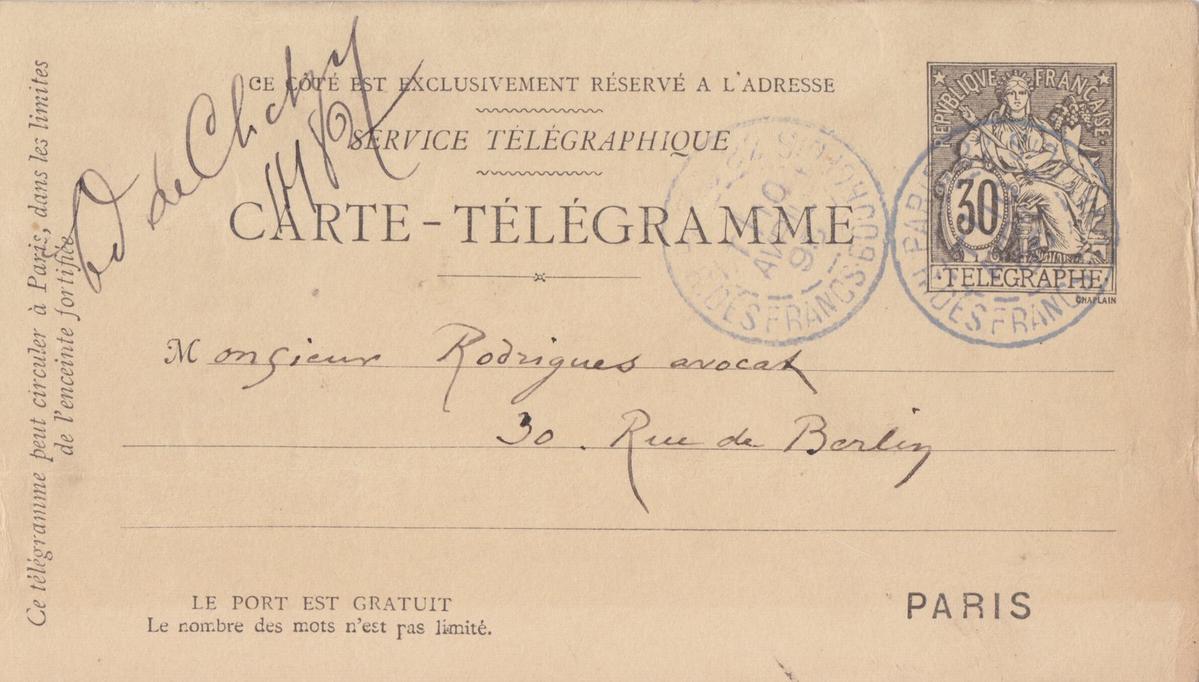 CE CÔTÉ EST EXCLUSIVEMENT RÉSERVÉ A L'ADRESSE
SERVICE TÉLÉGRAPHIQUE
CARTE-TÉLÉGRAMME
REPUBLIQUE FRANÇAISE
30
TELEGRAPHE
CHAPLAIN
Bd de Clichy
Ce télégramme peut circuler à Paris, dans les limites
de l'enceinte fortifiée
R. DES FRANCS BOURGEOIS
PARIS
R. DES FRANCS
Monsieur Rodrigues avocat
30. Rue de Berlin
LE PORT EST GRATUIT
Le nombre des mots n'est pas limité.
PARIS